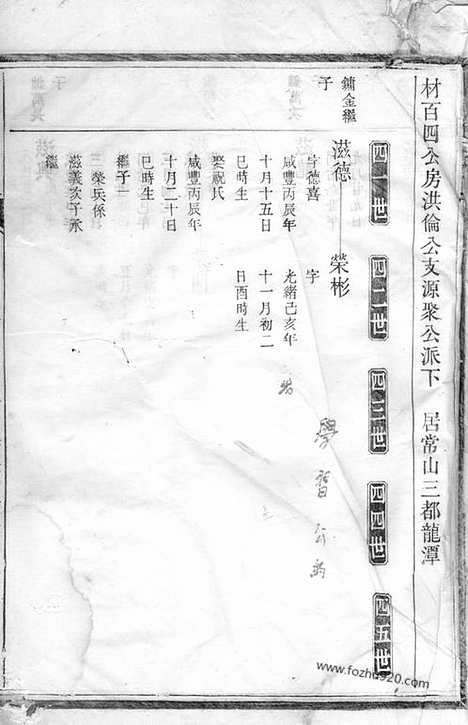 材百四公房洪倫公支源聚公派下　居常山三都龍潭
四一世
四二世
四三世
四四世
四五世
鏞金繼
子
滋德
榮彬
字德喜
咸豐丙辰年
十月十五日
巳時生
娶祝氏
咸豐丙辰年
十月二十日
巳時生
繼子一
三榮兵係
滋義次子承
繼
字
光緒己亥年
十一月初二
日酉時生
學
www.fozhu920.com